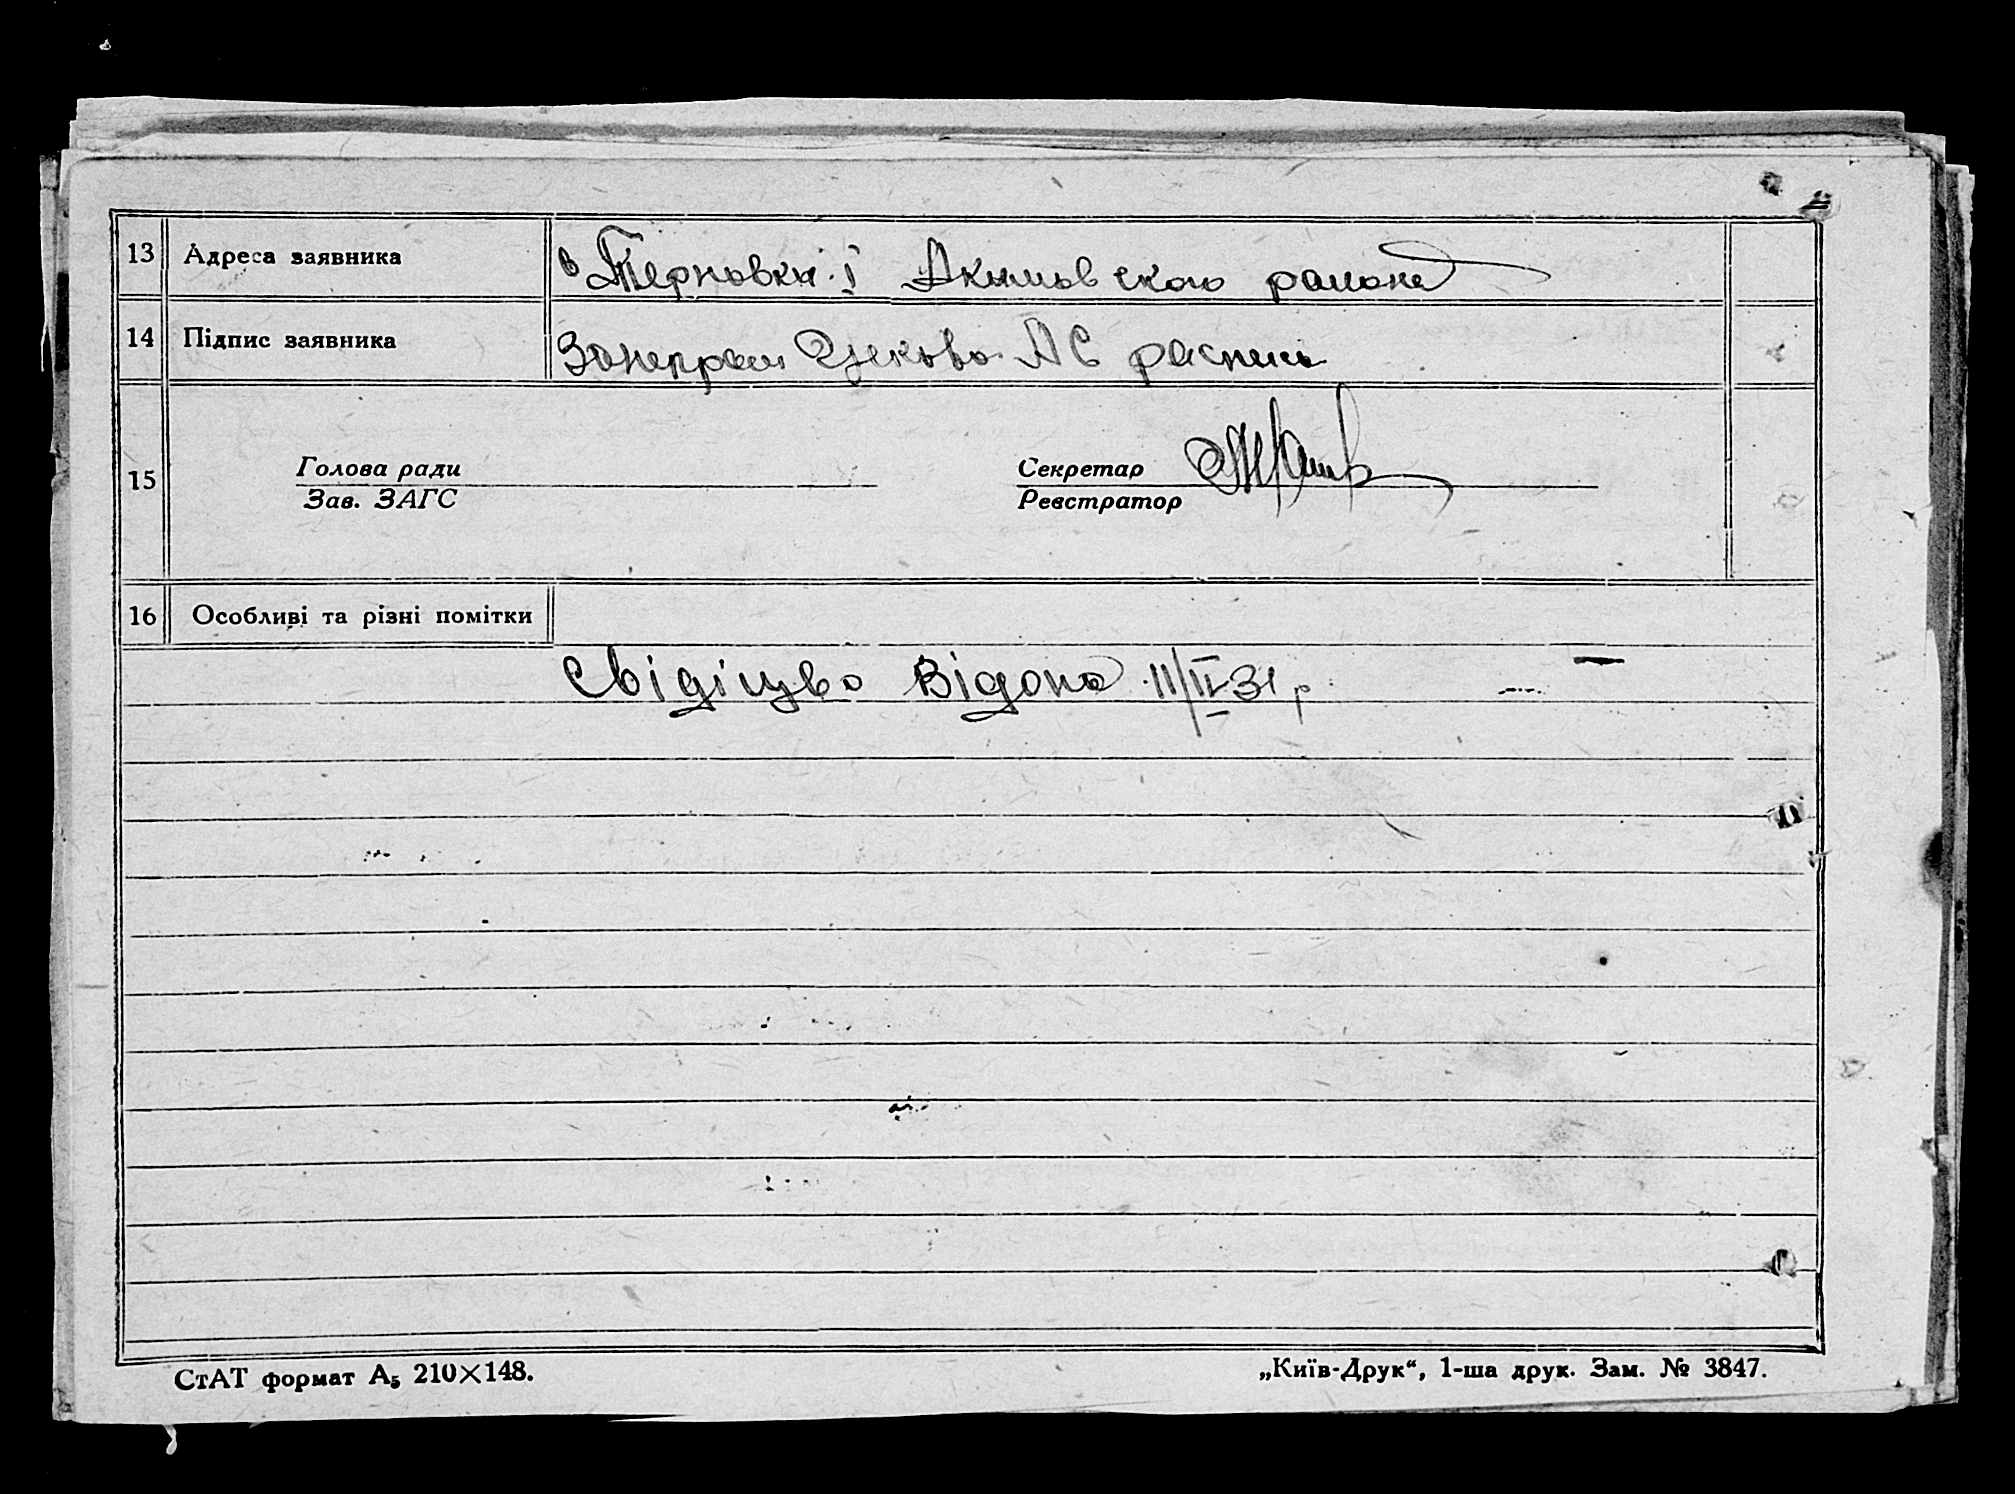 13 Адреса заявника в Терновки I Акимовского района
14 Підпис заявника АС роспись
15 Голова ради Секретар
Зав. ЗАГС Реєстратор
16 Особливі та різні помітки
Свідіцво Відоно 11/II-31 р
СтАТ формат А₅ 210×148. „Київ-Друк“, 1-ша друк. Зам. № 3847.